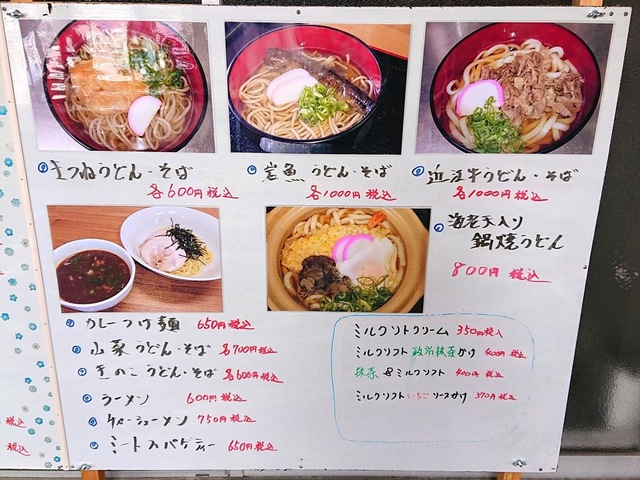 きつねうどん・そば
各600円税込
岩魚うどん・そば
各1000円税込
近江牛うどん・そば
各1000円税込
海老天入り
鍋焼うどん
800円税込
カレーつけ麺 650円税込
山菜うどん・そば 各700円税込
きのこうどん・そば 各600円税込
ラーメン 600円税込
チャーシューメン 750円税込
ミートスパゲティー 650円税込
ミルクソフトクリーム 350円税込
ミルクソフト政所抹茶かけ 400円税込
抹茶&ミルクソフト 400円税込
ミルクソフトいちごソースかけ 370円税込
税込
税込